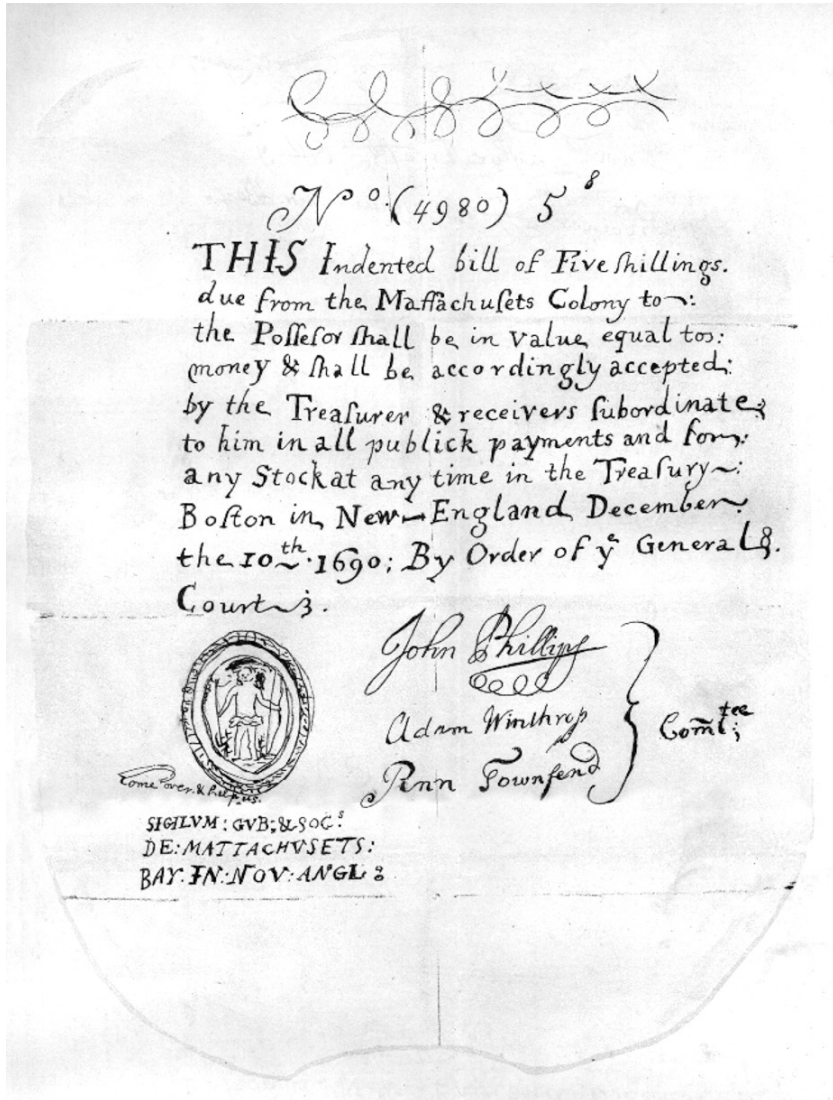 Nº. (4980) 5ˢ
THIS Indented bill of Five ſhillings.
due from the Maſſachuſets Colony to:
the Poſſeſor ſhall be in value equal to:
money & ſhall be accordingly accepted:
by the Treaſurer & receivers ſubordinate;
to him in all publick payments and for:
any Stock at any time in the Treaſury:
Boſton in New-England December.
the 10th. 1690; By Order of yᵉ General.
Court.
John Phillips
Adam Winthrop
Penn Townſend
Com̃tee;
Come over & help us.
SIGILVM: GVB: & SOC:
DE: MATTACHVSETS:
BAY. IN: NOV: ANGL